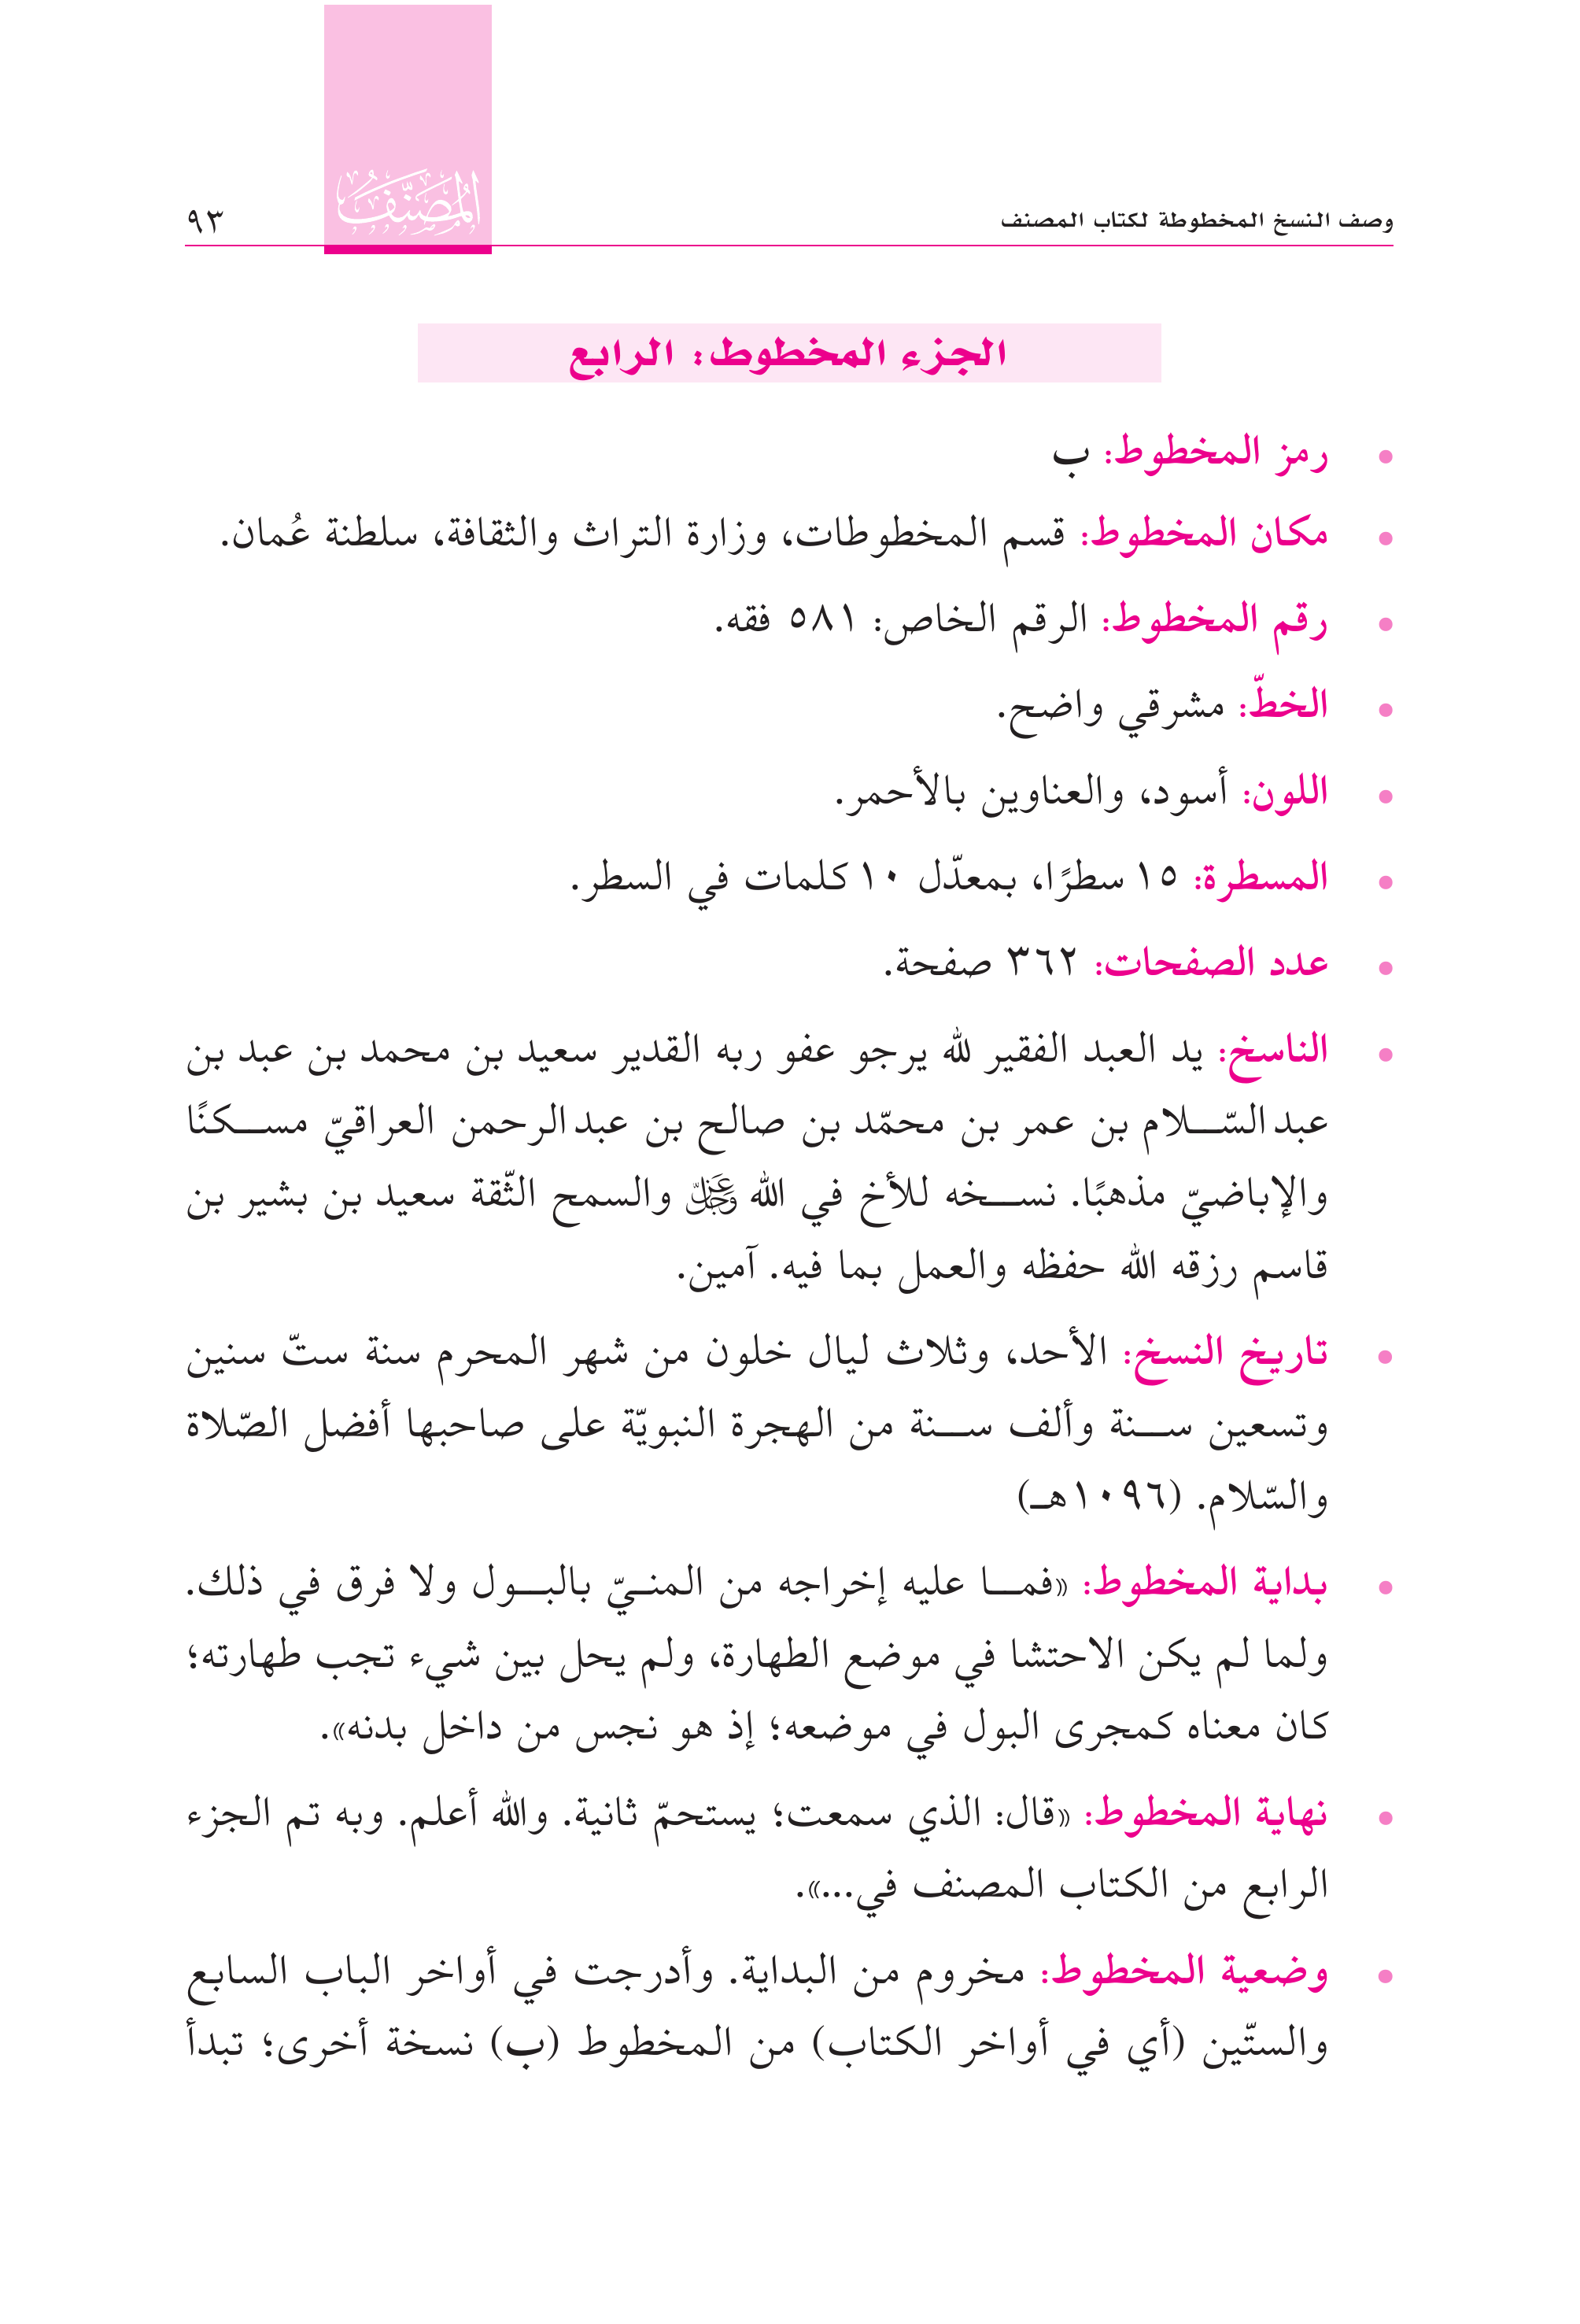 وصف النسخ المخطوطة لكتاب المصنف
المُصَنَّف
٩٣
الجزء المخطوط: الرابع
• رمز المخطوط: ب
• مكان المخطوط: قسم المخطوطات، وزارة التراث والثقافة، سلطنة عُمان.
• رقم المخطوط: الرقم الخاص: ٥٨١ فقه.
• الخطّ: مشرقي واضح.
• اللون: أسود، والعناوين بالأحمر.
• المسطرة: ١٥ سطرًا، بمعدّل ١٠ كلمات في السطر.
• عدد الصفحات: ٣٦٢ صفحة.
• الناسخ: يد العبد الفقير لله يرجو عفو ربه القدير سعيد بن محمد بن عبد بن
عبدالسّـــلام بن عمر بن محمّد بن صالح بن عبدالرحمن العراقيّ مســـكنًا
والإباضيّ مذهبًا. نســـخه للأخ في الله عَزَّ وَجَلَّ والسمح الثّقة سعيد بن بشير بن
قاسم رزقه الله حفظه والعمل بما فيه. آمين.
• تاريخ النسخ: الأحد، وثلاث ليال خلون من شهر المحرم سنة ستّ سنين
وتسعين ســـنة وألف ســـنة من الهجرة النبويّة على صاحبها أفضل الصّلاة
والسّلام. (١٠٩٦هـ)
• بداية المخطوط: «فمـــا عليه إخراجه من المنـــيّ بالبـــول ولا فرق في ذلك.
ولما لم يكن الاحتشا في موضع الطهارة، ولم يحل بين شيء تجب طهارته؛
كان معناه كمجرى البول في موضعه؛ إذ هو نجس من داخل بدنه».
• نهاية المخطوط: «قال: الذي سمعت؛ يستحمّ ثانية. والله أعلم. وبه تم الجزء
الرابع من الكتاب المصنف في...».
• وضعية المخطوط: مخروم من البداية. وأدرجت في أواخر الباب السابع
والستّين (أي في أواخر الكتاب) من المخطوط (ب) نسخة أخرى؛ تبدأ